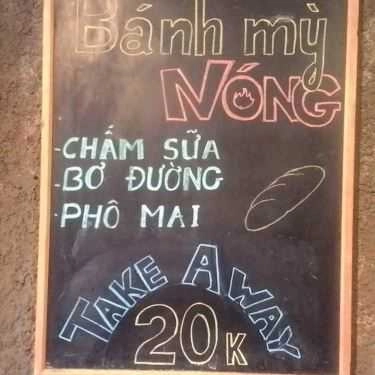 Bánh mỳ
NÓNG
- CHẤM SỮA
- BƠ ĐƯỜNG
- PHÔ MAI
TAKE AWAY
20K